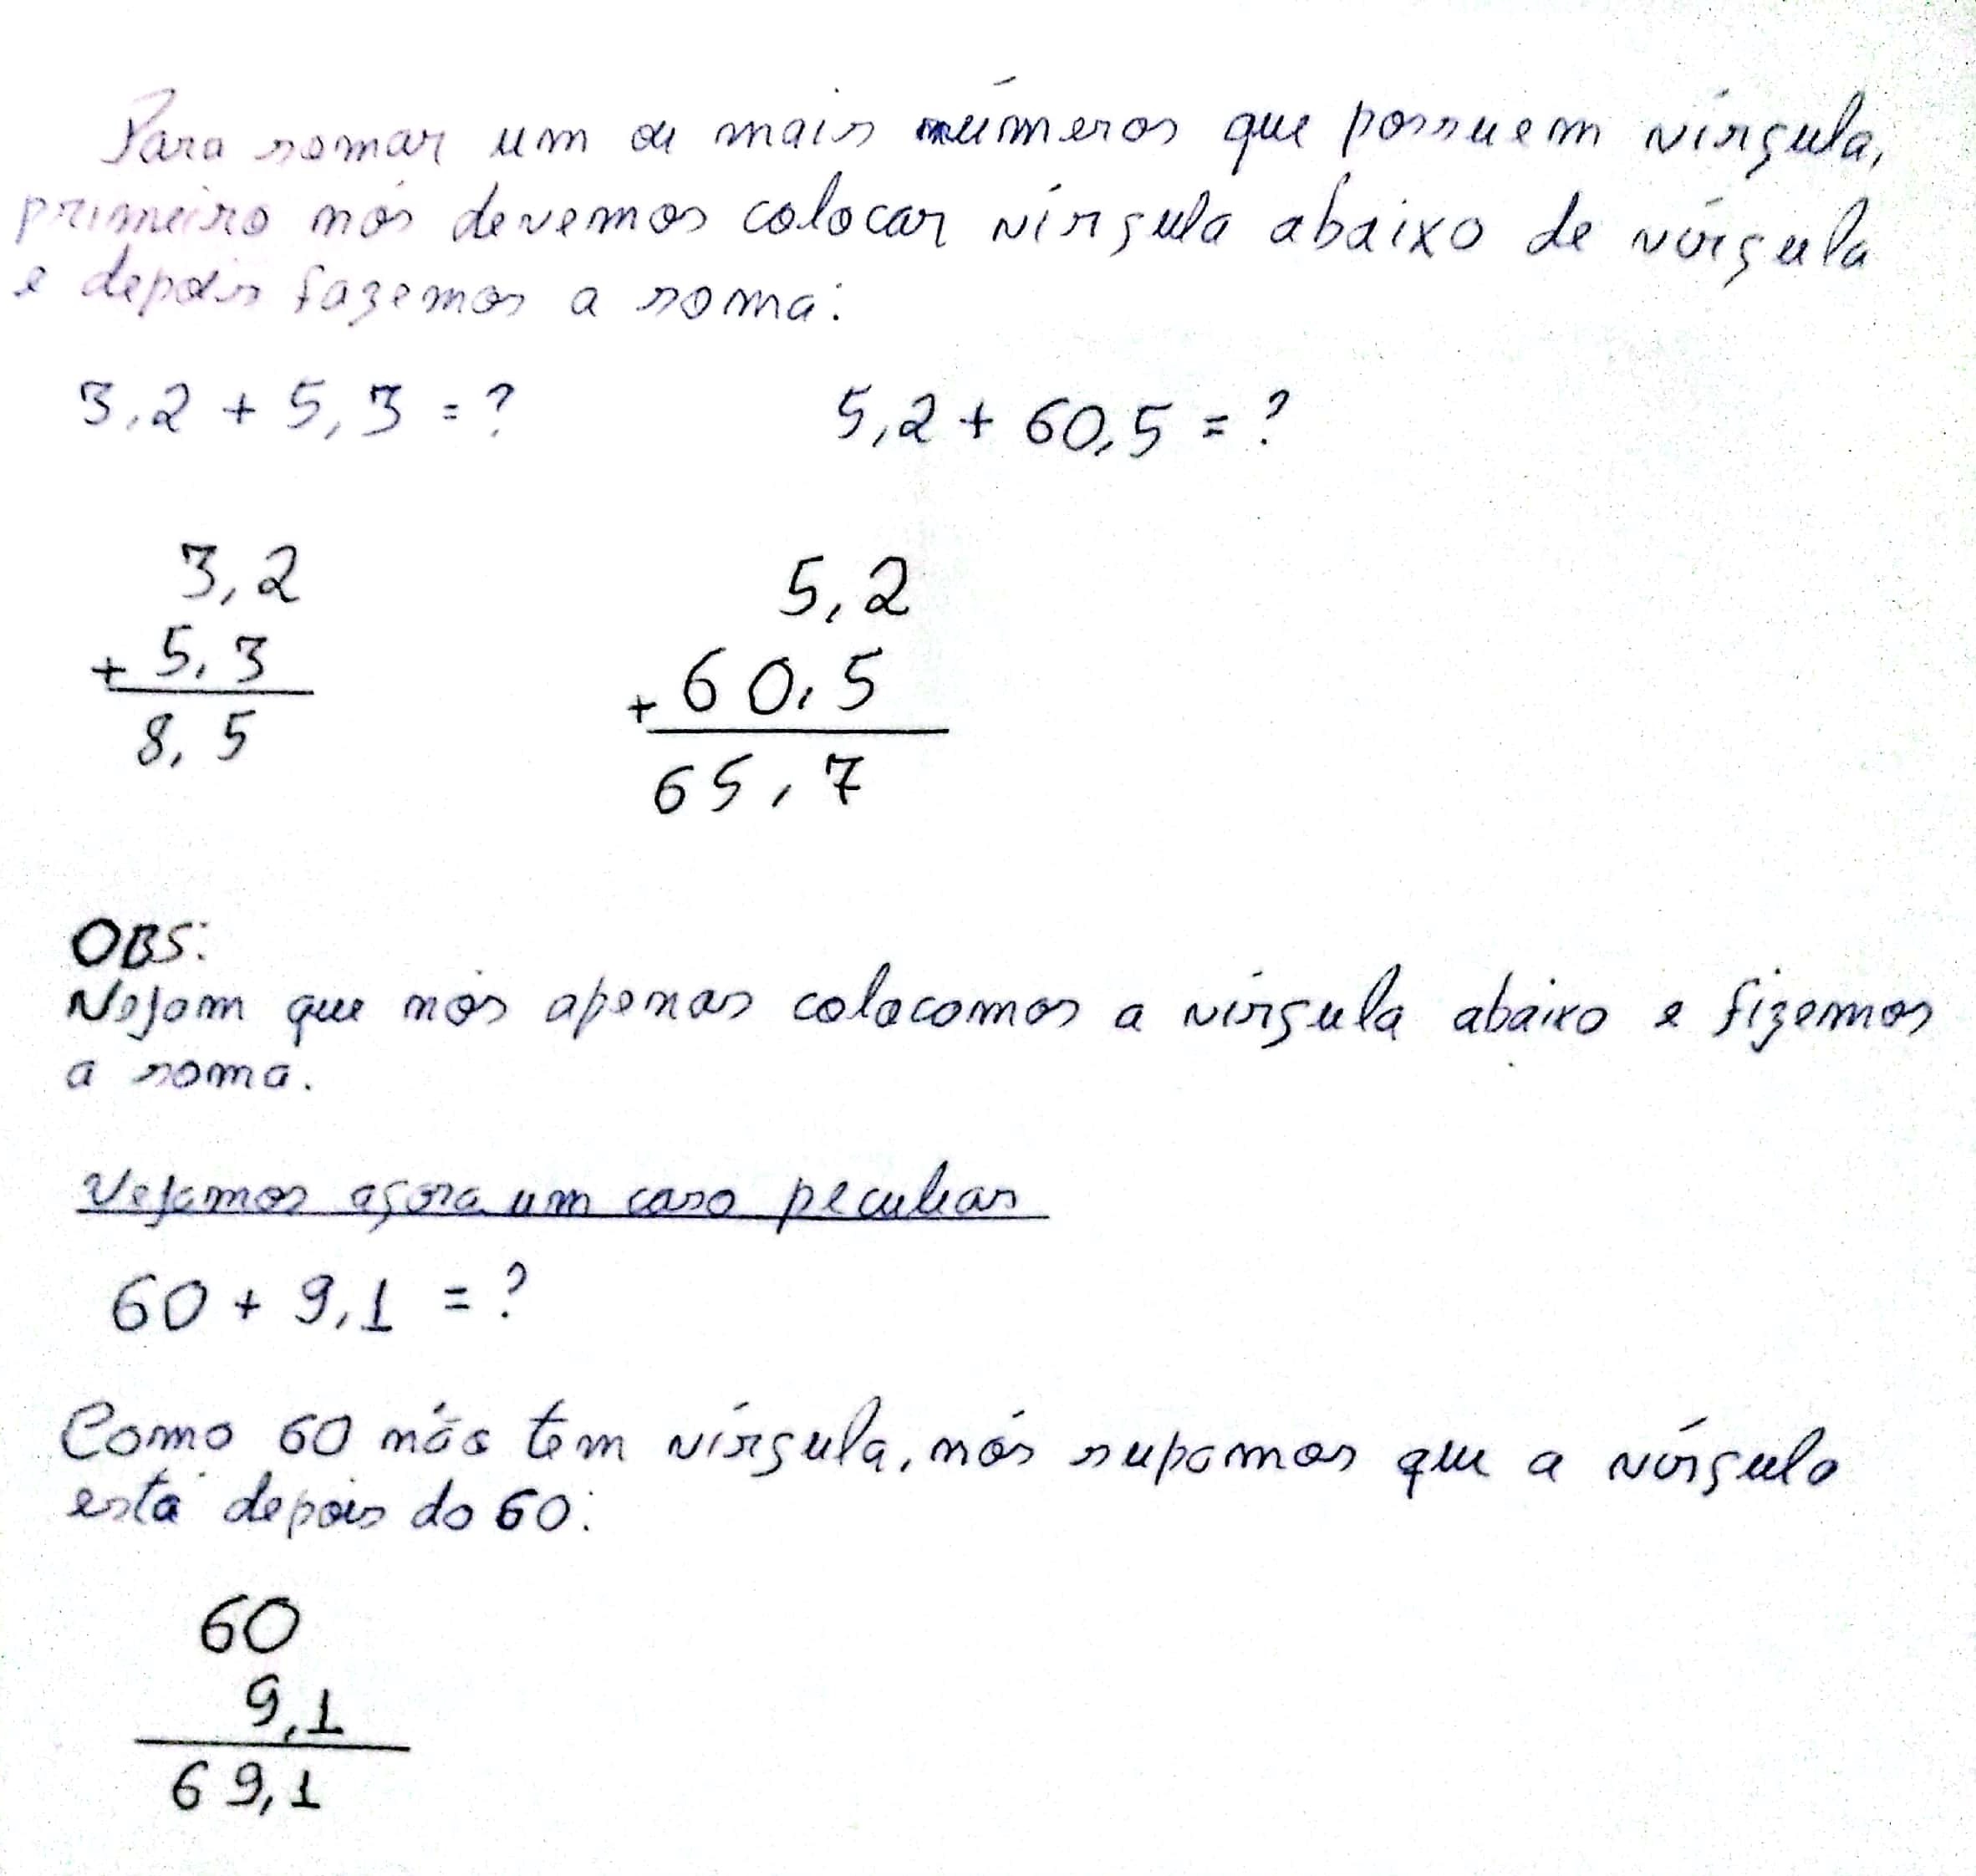 Para somar um ou mais números que possuem vírgula,
primeiro nós devemos colocar vírgula abaixo de vírgula
e depois fazemos a soma:
3,2 + 5,3 = ? 5,2 + 60,5 = ?
3,2 5,2
+ 5,3 + 60,5
8,5 65,7
OBS:
Vejam que nós apenas colocamos a vírgula abaixo e fizemos
a soma.
Vejamos agora um caso peculiar
60 + 9,1 = ?
Como 60 não tem vírgula, nós supomos que a vírgula
está depois do 60:
60
9,1
69,1